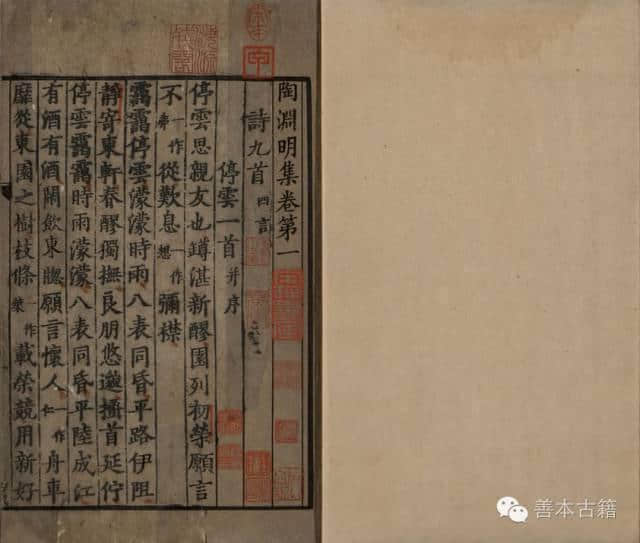 宋本
甲
陶淵明集卷第一
詩九首 四言
停雲一首 并序
停雲思親友也罇湛新醪園列初榮願言
不一作弗從歎息一作想彌襟
靄靄停雲濛濛時雨八表同昏平路伊阻
靜寄東軒春醪獨撫良朋悠邈搔首延佇
停雲靄靄時雨濛濛八表同昏平陸成江
有酒有酒閒飲東牕願言懷人一作仁舟車
靡從東園之樹枝條一作葉載榮競用新好
善本古籍